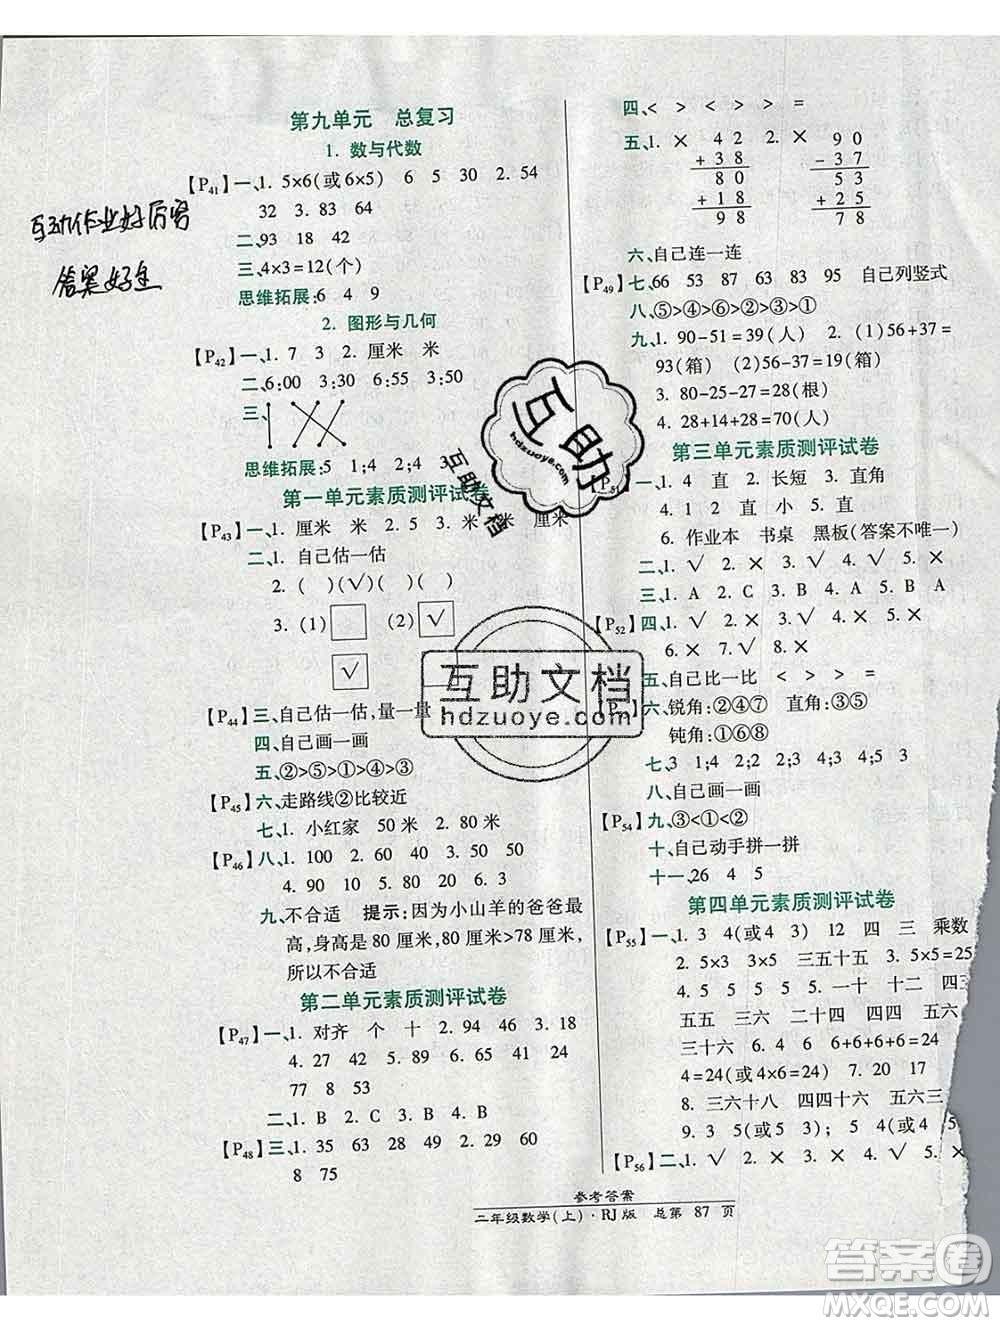 第九单元 总复习
1. 数与代数
【P41】一、1. 5×6(或 6×5) 6 5 30 2. 54
32 3. 83 64
二、93 18 42
三、4×3=12(个)
思维拓展:6 4 9
2. 图形与几何
【P42】一、1. 7 3 2. 厘米 米
二、6:00 3:30 6:55 7:50
三、
思维拓展:5 1;4 2;4 3
第一单元素质测评试卷
【P43】一、1. 厘米 米 2. 5 3. 米 米 厘米
二、1. 自己估一估
2. ( )(√)( )( )
3. (1) (2) √
√
【P44】三、自己估一估,量一量
四、自己画一画
五、②>⑤>①>④>③
【P45】六、走路线②比较近
七、1. 小红家 50 米 2. 80 米
【P46】八、1. 100 2. 40 3. 50 50
4. 90 5. 80 20 6. 3
九、不合适 提示:因为小山羊的爸爸最
高,身高是 80 厘米,80 厘米>78 厘米,
所以不合适
第二单元素质测评试卷
【P47】一、1. 对齐 个 十 2. 94 46 3. 18
4. 27 42 5. 88 60 6. 50
77 8 53
二、1. B 2. C 3. B 4. B
【P48】三、1. 35 63 28 49 29 60
8 75
四、< > < > > =
五、1. × 42 2. × 90
+38 -37
80 53
+18 +25
98 78
六、自己连一连
【P49】七、66 53 87 63 83 95 自己列竖式
八、⑤>④>⑥>②>③>①
九、1. 90-51=39(人) 2. (1)56+37=
93(箱) (2)56-37=19(箱)
3. 80-25-27=28(根)
4. 28+14+28=70(人)
第三单元素质测评试卷
【P51】一、1. 4 直 2. 长短 3. 直角
4. 1 2 直 小 5. 直
6. 作业本 书桌 黑板(答案不唯一)
二、1. √ 2. × 3. √ 4. × 5. √ 6. ×
三、1. A 2. C 3. B 4. A 5. B 6. A
【P52】四、1. √ 2. × 3. √ 4. √ 5. ×
6. × 7. √ 8. ×
五、自己比一比 < > > =
六、锐角:②④⑦ 直角:③⑤
钝角:①⑥⑧
七、3 1;4 2;2 2;3 4;5 3
八、自己画一画
【P54】九、③<①<②
十、自己动手拼一拼
十一、26 4 5
第四单元素质测评试卷
【P55】一、1. 3 4(或 4 3) 12 四 三 乘数
2. 5×3 3×5 三五十五 3. 5×5=25
4. 一四 二二 二六 十二 四三
五五 三六 二八 四四 五六
三十六 6. 4 6 6+6+6+6=24
4=24(或 4×6=24) 7. 20 15
8. 三六十八 四四十六 五六
9. 3 5(或 5 3) 二三
【P56】二、1. √ 2. × 3. × 4. √ 5. ×
参考答案
二年级数学(上)·RJ版 总第 87 页
互动作业好厉害
答案好全
互助
hdzuoye.com
互助文档
互助文档
hdzuoye.com
答案卷
MXQE.COM